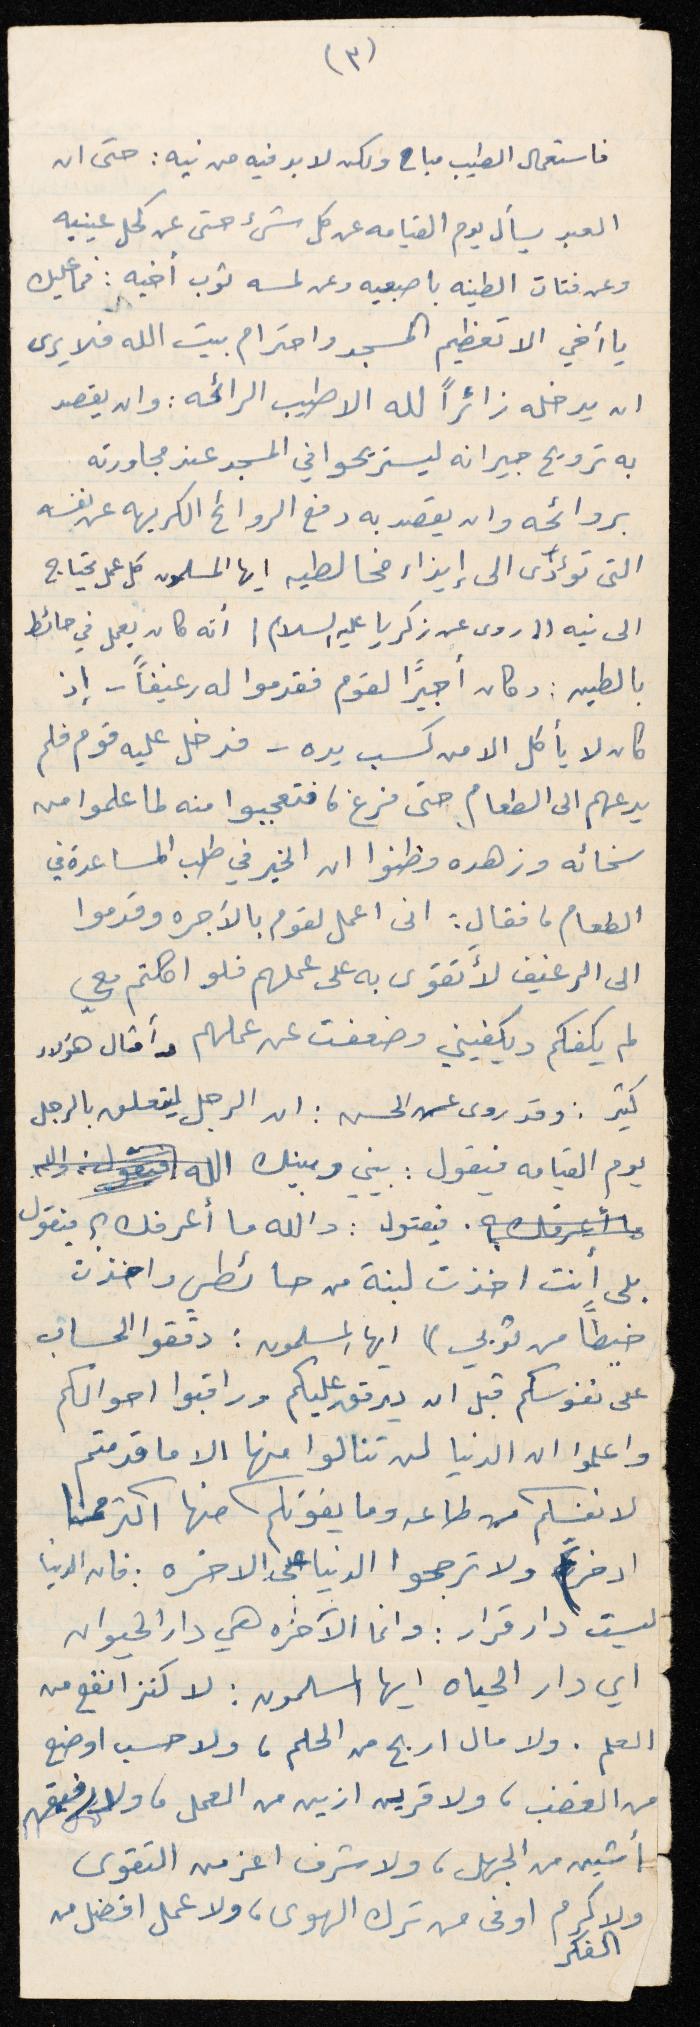 (٣)
فاستعمال الطيب مباح ولكن لا بد فيه من نيه : حتى ان
العبد يسأل يوم القيامه عن كل شيء حتى عن كحل عينيه
وعن فتات الطينه باصبعيه وعن لمسه ثوب أخيه : فما عليك
يا أخي الا تعظيم المسجد واحترام بيت الله فلا يرى
ان يدخله زائراً لله الا طيب الرائحه : وان يقصد
به ترويح جيرانه ليستريحوا في المسجد عند مجاورته
بروائحه وان يقصد به دفع الروائح الكريهه عن نفسه
التي تؤدى الى إيذاء مخالطيه ايها المسلمون كل عمل يحتاج
الى نيه (( روى عن زكريا عليه السلام / أنه كان يعمل في حائط
بالطين : وكان أجيرًا لقوم فقدموا له رغيفاً - إذ
كان لا يأكل الا من كسب يده - فدخل عليه قوم فلم
يدعهم الى الطعام حتى فرغ ، فتعجبوا منه لما علموا من
سخائه وزهده وظنوا ان الخير في طلب المساعدة في
الطعام ، فقال : انى اعمل لقوم بالأجره وقدموا
الى الرغيف لأتقوى به على عملهم فلو اكلتم معي
لم يكفكم ويكفيني وضعفت عن عملهم وأمثال هؤلاء
كثير : وقد روى عن الحسن : ان الرجل ليتعلق بالرجل
يوم القيامه فيقول : بيني وبينك الله فيقول : والله
ما أعرفك . فيقول : والله ما أعرفك ؟ فيقول
بلى أنت اخذت لبنة من حائطي واخذت
خيطاً من ثوبي )) ايها المسلمون : دققوا الحساب
على نفوسكم قبل ان يدقق عليكم وراقبوا احوالكم
واعلموا ان الدنيا لن تنالوا منها الا ما قدمتم
لانفسكم من طاعه وما يفوتكم منها اكثر مما
ادخرتم ولا ترجحوا الدنيا على الاخره : فان الدنيا
ليست دار قرار : وانما الآخره هي دار الحيوان
اي دار الحياه ايها المسلمون : لا كنز انفع من
العلم . ولا مال اربح من الحلم ، ولا حسب اوضع
من الغضب ، ولا قرين ازين من العمل ، ولا رفيق
أشين من الجهل ، ولا شرف اعز من التقوى
ولا كرم اوفى من ترك الهوى ، ولا عمل افضل من
الفكر